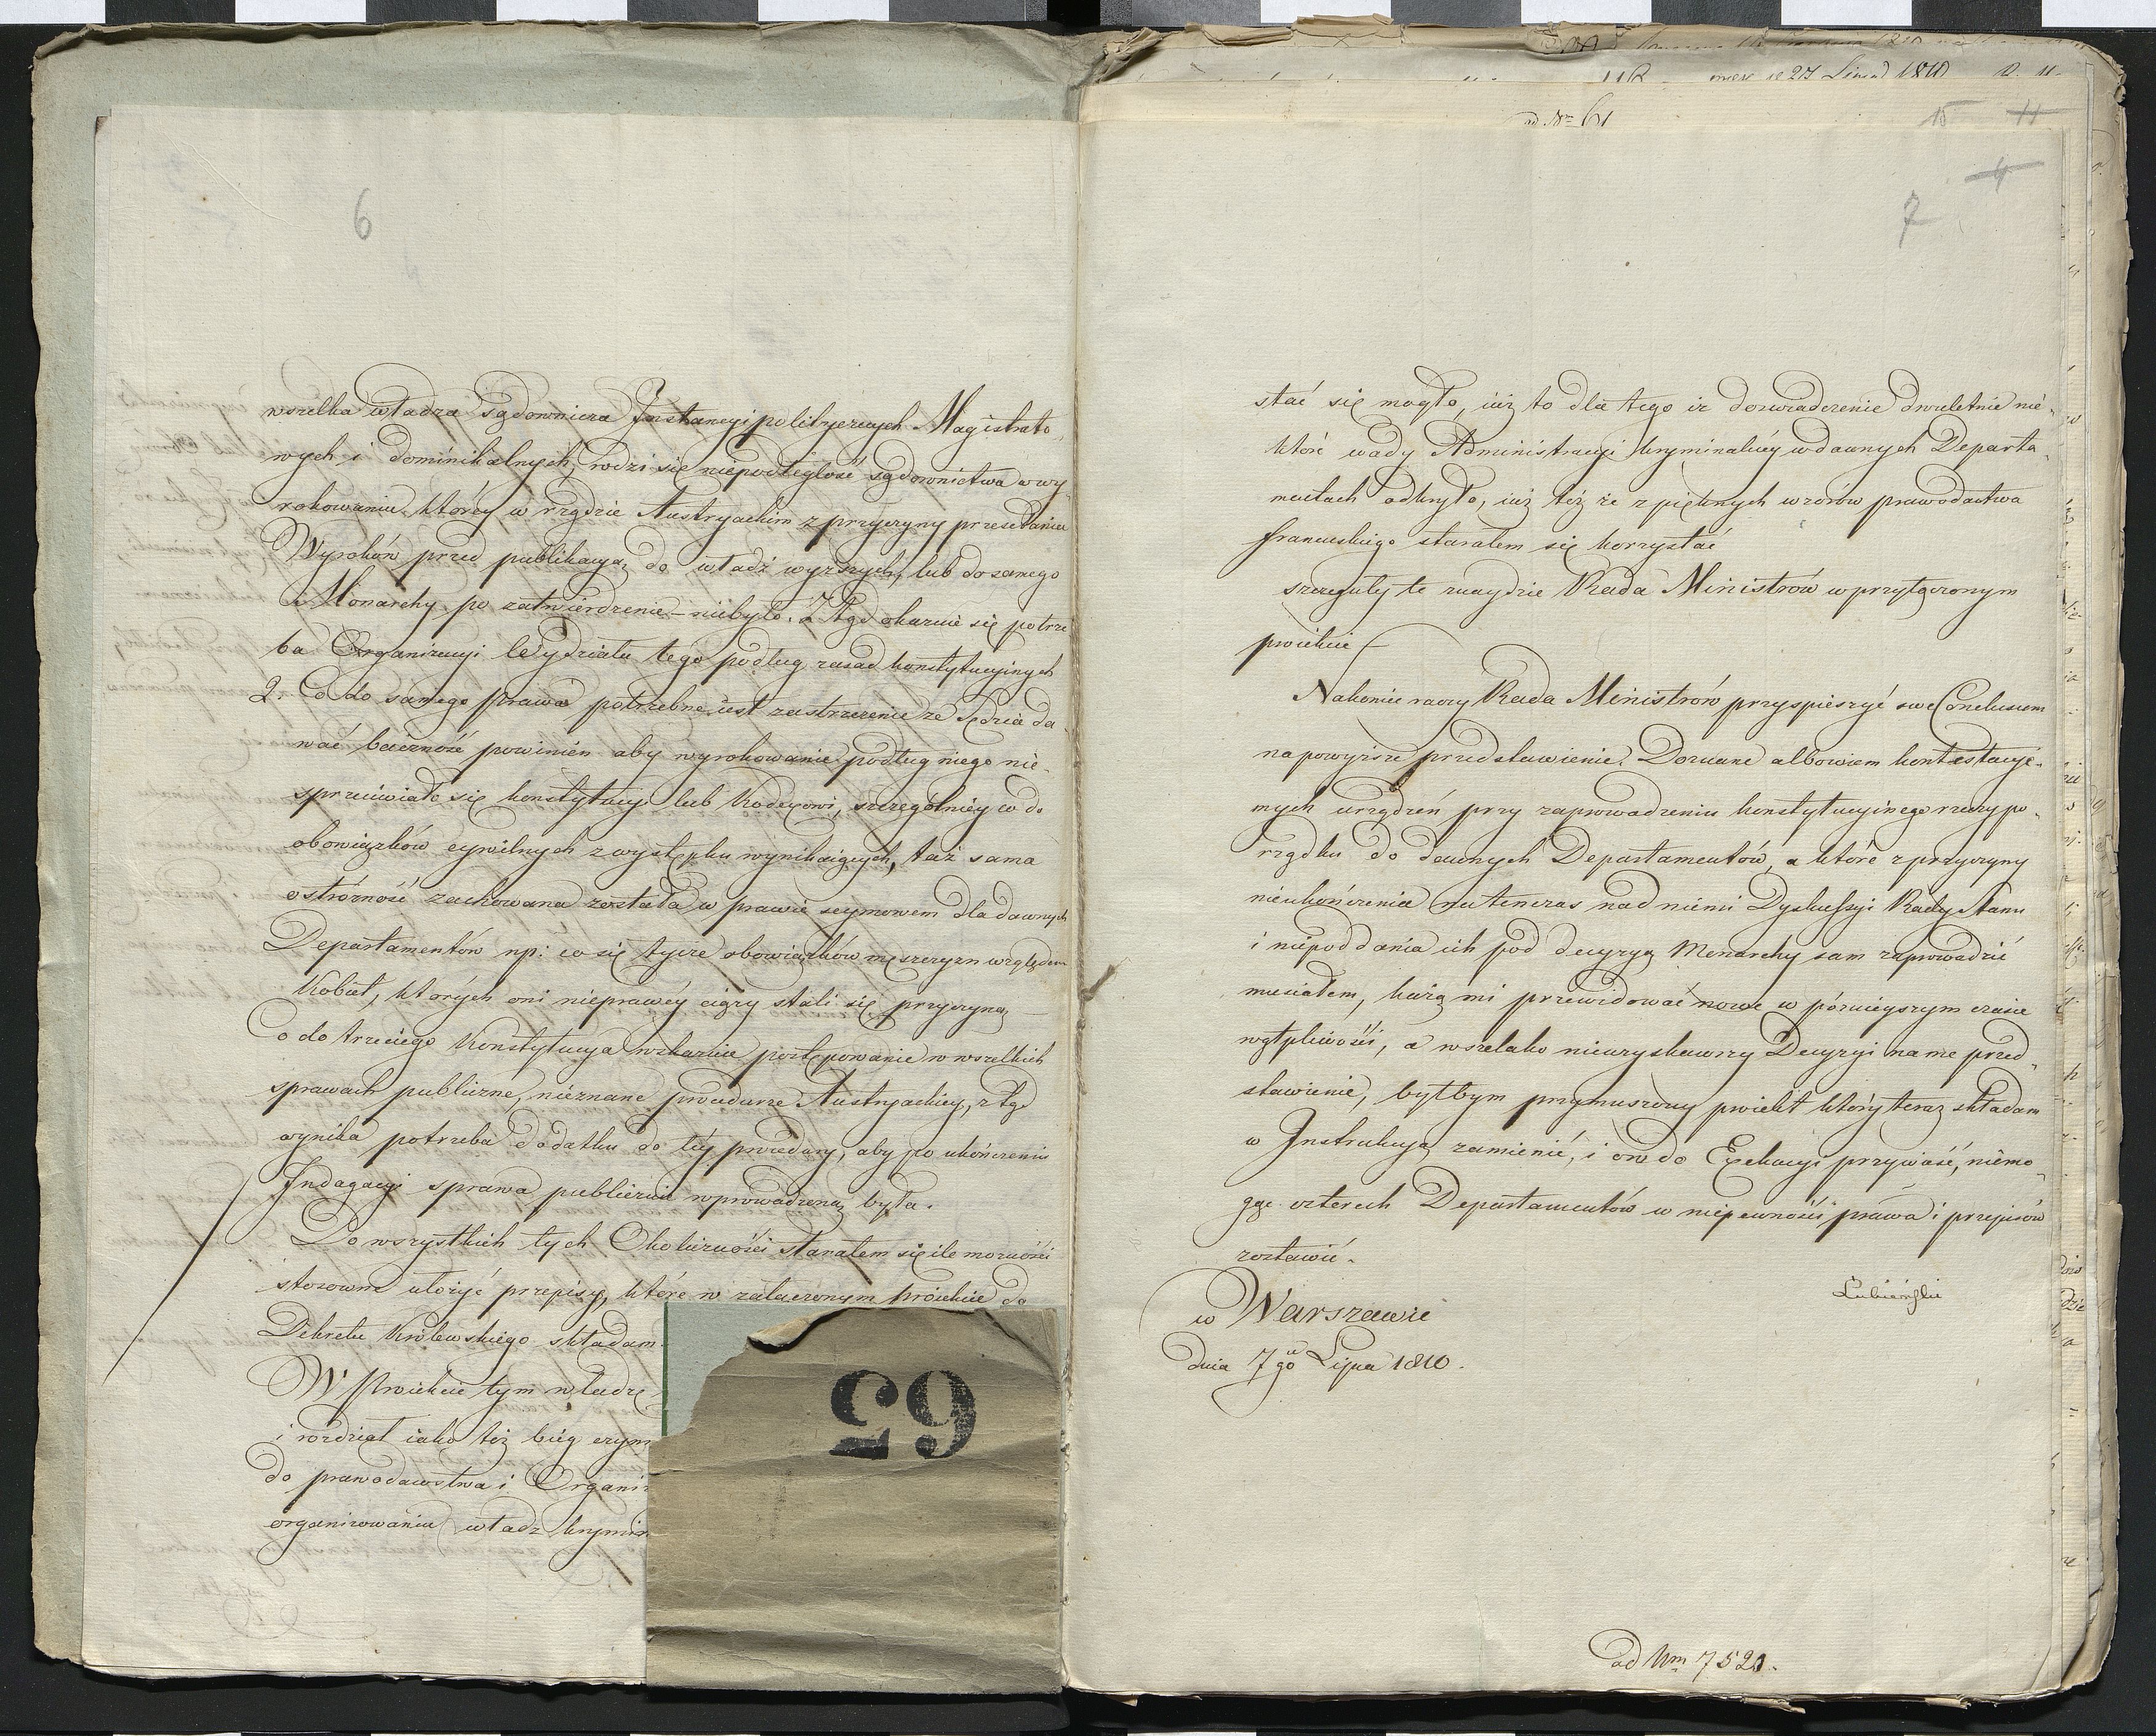 6
wszelka władza sądownicza Instancyi politycznych Magistrato
wych i dominikalnych, rodzi się niepodległość sądownictwa w wy
rokowaniu, któréy w rządzie Austryackim z przyczyny przesełania
Wyroków przed publikacyą do władz wyższych, lub do samego
Monarchy po zatwierdzenie – niebyło. Z tąd okazuie się potrze
ba Organizacyi Wydziału tego podług zasad konstytucyinych
2. Co do samego Prawa potrzebne iest zastrzeżenie że Sędzia da
wać baczność powinien aby wyrokowanie podług niego nie-
sprzeciwiało się konstytucyi lub Kodexowi, szczególniéy co do
obowiązków cywilnych z występku wynikaiących, taż sama
ostróżność zachowana została w prawie seymowem dla dawnych
Departamentów np: co się tycze obowiązków męszczyzn względem
Kobiet, których oni nieprawéy ciąży stali się przyczyną –
Co do trzeciego Konstytucya wskazuie postępowanie w wszelkich
sprawach publiczne, nieznane procedurze Austryackiey, z tąd
wynika potrzeba dodatku do téy procedury, aby po ukończeniu
Indagacyi sprawa publicznie wprowadzoną była.
Do wszystkich tych Okoliczności starałem się ile możności
stosowne ułożyć przepisy, które w załączonym proiekcie do
Dekretu Królewskiego składam.
W Proiekcie tym władzę
i rozdział iako też bieg czyn
do prawodawstwa i Organiz
organizowaniu władz krymin
65
27 1810
ad Nro 61
15 11
4
7
stać się mogło, iuż to dla tego iż doswiadczenie dwuletnie nie-
które wady Administracyi kryminalnéy w dawnych Departa-
mentach odkryło, iuż też że z pięknych wzorów prawodastwa
francuskiego starałem się korzystać
szczeguły te znaydzie Rada Ministrów w przyłączonym
proiekcie
Nakoniec raczy Rada Ministrów przyspieszyć swe Conclusum
na powyższe przedstawienie. Doznane albowiem kontestacye
mych urządzeń przy zaprowadzeniu konstytucyinego rzeczy po-
rządku do dawnych Departamentów, a które z przyczyny
nieukończenia na tenczas nad niemi Dyskussyi Rady Stanu
i niepoddania ich pod decyzyą Monarchy sam zaprowadzić
musiałem, każą mi przewidować nowe w pózniéyszym czasie
wątpliwości, a wszelako nieuzyskawszy Decyzyi na me przed-
stawienie, byłbym przymuszony proiekt który teraz składam
w Instrukcyą zamienić, i ow do Exekucyi przywieść, niemo-
gąc czterech Departamentów w niepewności prawa i przepisów
zostawić.
Łubieński
w Warszawie
dnia 7go Lipca 1810.
ad Num 7520.